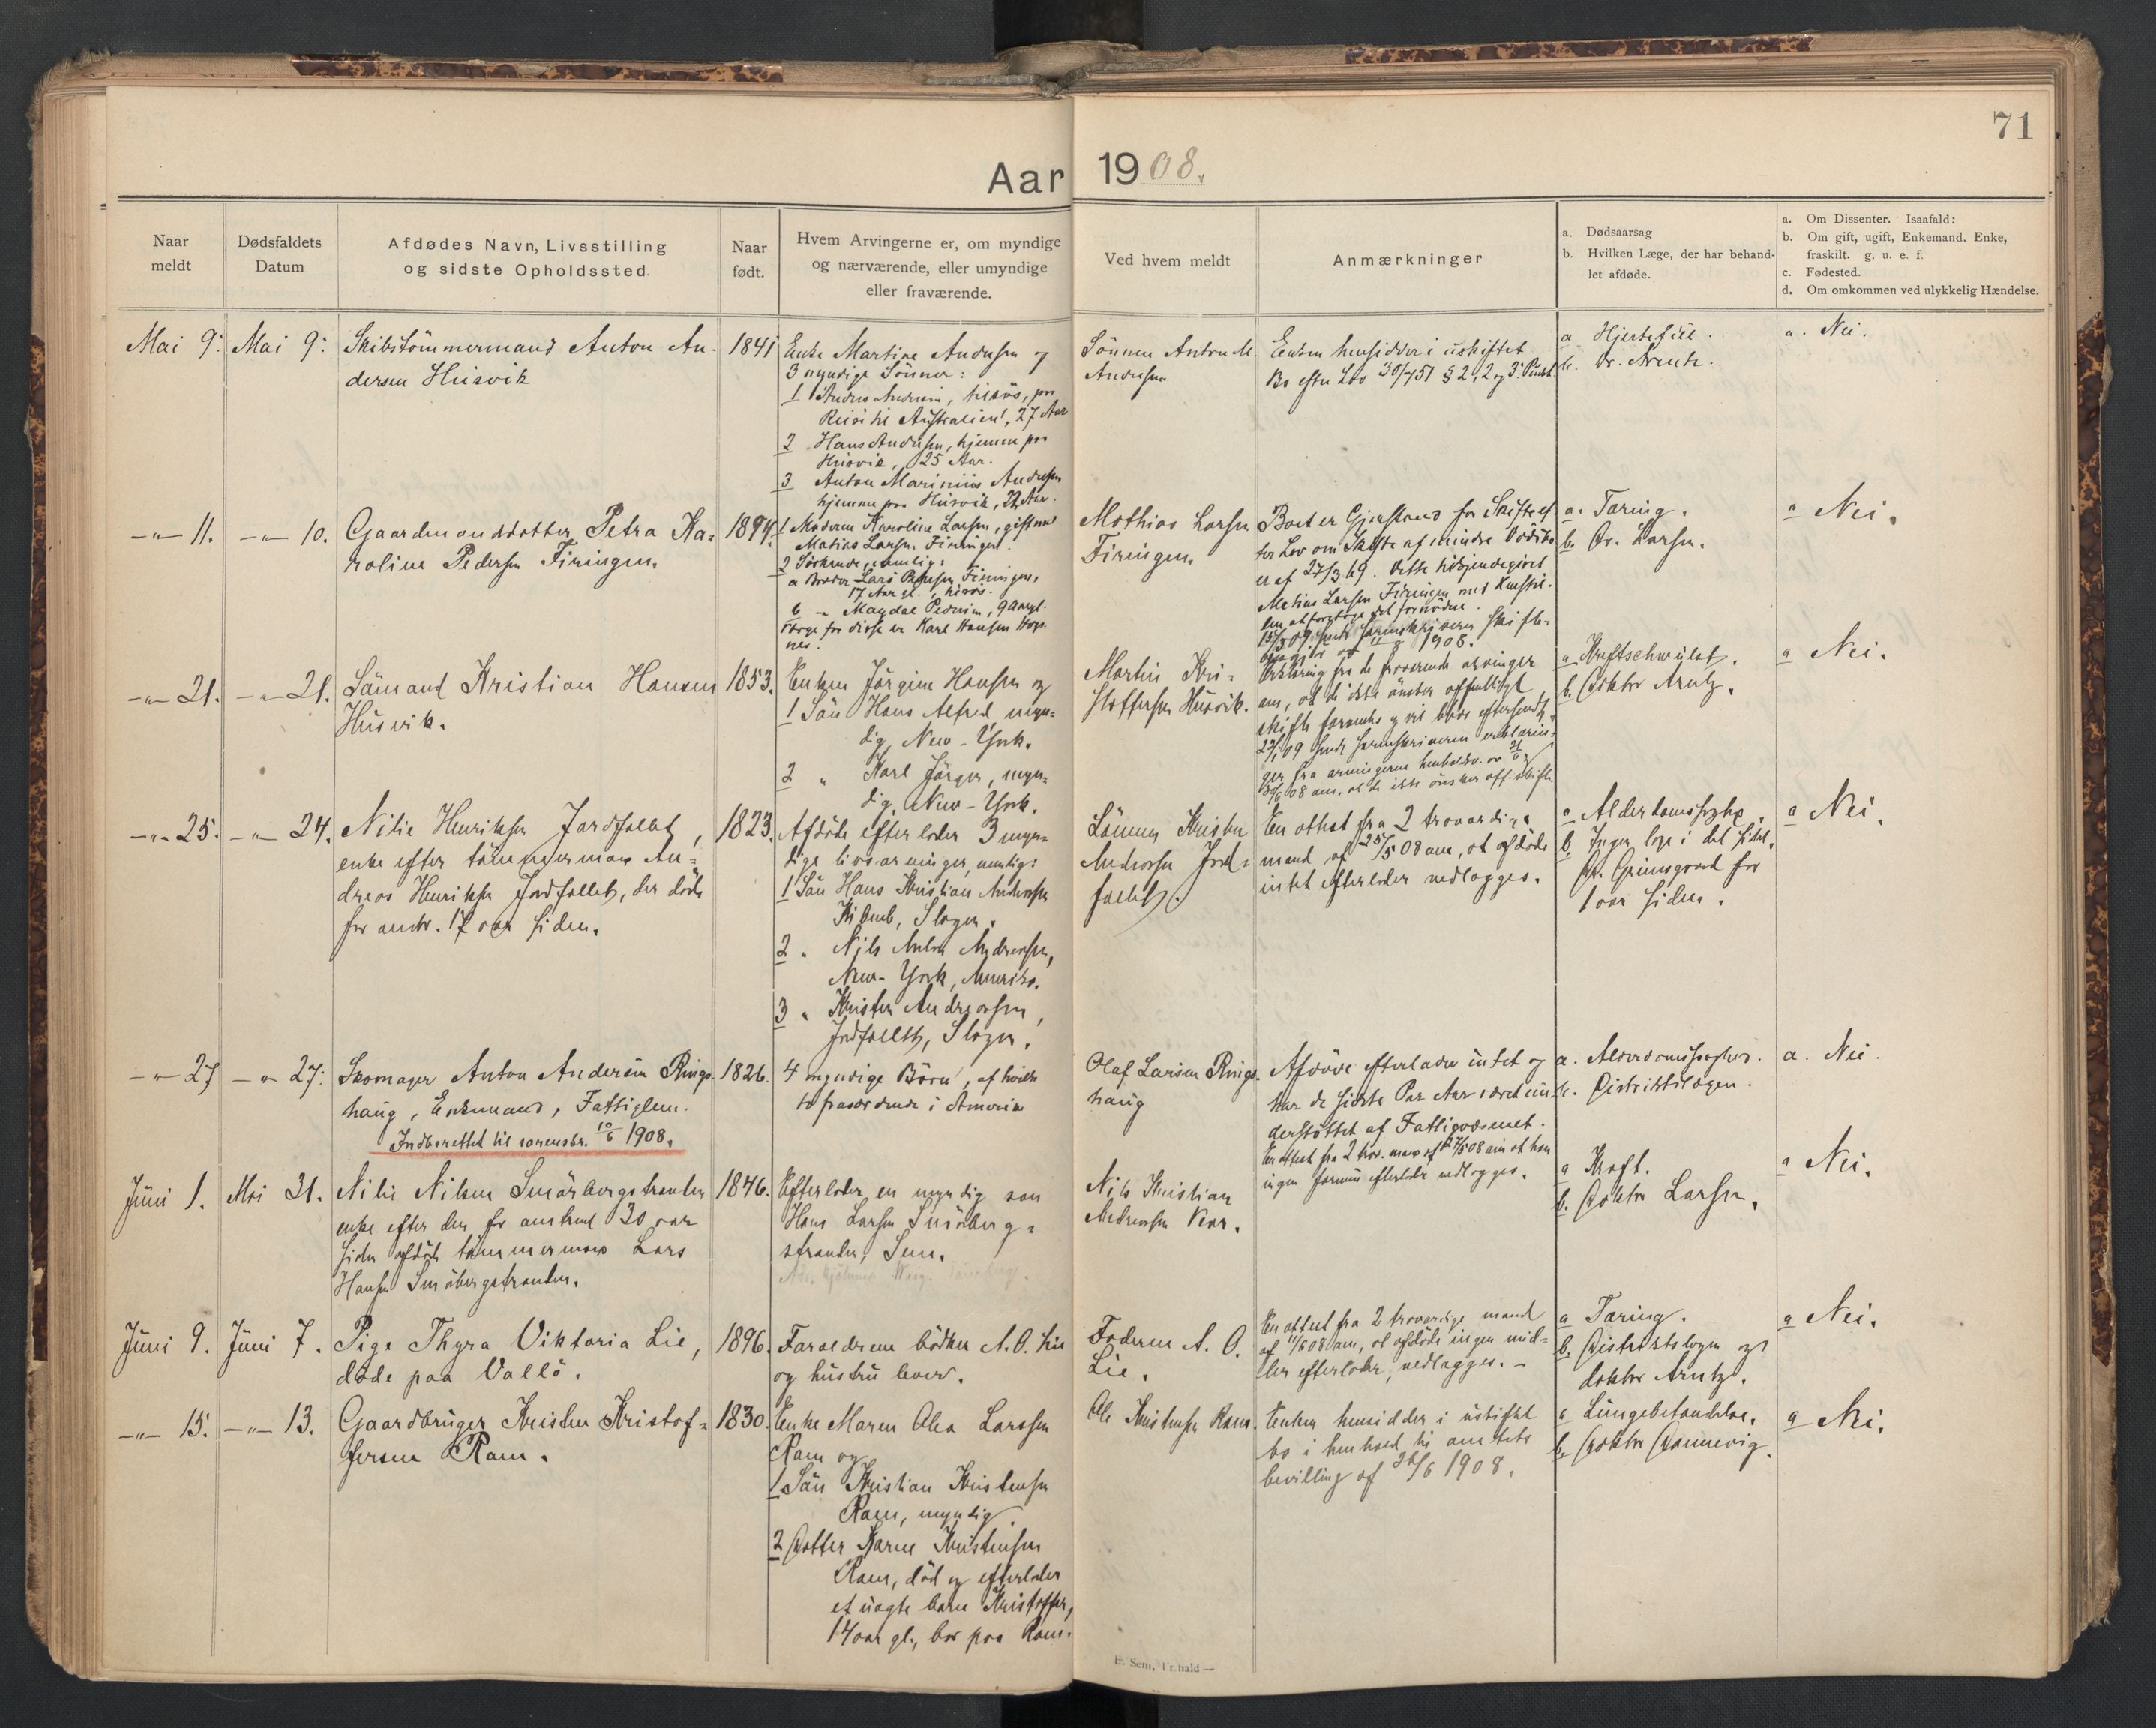 71
Aar 1908.
Naar meldt
Dødsfaldets Datum
Afdødes Navn, Livsstilling og sidste Opholdssted.
Naar født.
Hvem Arvingerne er, om myndige og nærværende, eller umyndige eller fraværende.
Ved hvem meldt
Anmærkninger
a. Dødsaarsag
b. Hvilken Læge, der har behand-
let afdøde.
a. Om Dissenter. Isaafald:
b. Om gift, ugift, Enkemand, Enke,
fraskilt. g. u. e. f.
c. Fødested.
d. Om omkommen ved ulykkelig Hændelse.
Mai 9. Mai 9.
Skibstömmermand Anton An-
dersen Husvik
1841
Enke Martine Andersen og
3 myndige Sönner:
1 Anders Andersen, tilsös, paa
Reise til Australien, 27 Aar
2 Hans Andersen, hjemme paa
Husvik, 25 Aar.
3 Anton Marinius Andersen
hjemme paa Husvik, 22 Aar.
Sönnen Anton M.
Andersen
Enken hensidder i uskiftet
Bo efter Lov 30/7 51 § 2, 2 og 3 Punkt
a Hjertefeil.
b. Dr. Arentz.
a. Nei.
-"- 11. -"- 10.
Gaardmandsdatter Petra Ka-
roline Pedersen Firingen.
1894.
1 Moderen Karoline Larsen, gift med
Matias Larsen Firingen.
2 Söskende, nemlig:
a Broder Lars Pedersen Firingen,
17 Aar gl., tilsös.
b -"- Magdal Pedersen, 9 Aar gl.
Værge for disse er Karl Hansen
nes.
Mathias Larsen
Firingen.
Boet er Gjenstand for Skifte ef-
ter Lov om Skifte af mindre Dödsbo
er af 27/3 69. Dette tilkjendegivet
Matias Larsen Firingen med
len at foretage det fornödne.
1908.
a. Tæring.
b. Dr. Larsen.
a Nei.
-"- 21. -"- 21.
Sömand Kristian Hansen
Husvik.
1853.
Enken Jörgine Hansen og
1 Sön Hans Alfred, myn-
dig, New-York.
2 " Karl Jörgen, myn-
dig, New-York.
Martin Kri-
stoffersen Husvik.
Erklæring fra de fraværende arvinger
om, at de ikke önsker offentligt
skifte forventes og vil blive eftersendt.
23/1 09 sendt Sorenskriveren erklærin-
ger fra arvingerne henholdsv. av
30/6 08 om, at de ikke önsker off. skifte.
a Kræftschwulst.
b. Doktor Arntz.
a Nei.
-"- 25. -"- 24.
Nilie Henriksen Jordfaldet,
enke efter tömmermand An-
dreas Henriksen Jordfaldet, der döde
for omtr. 17 aar siden.
1823.
Afdöde efterlader 3 myn-
dige livsarvinger, nemlig:
1 Sön Hans Kristian Andreassen
Slagen.
2 " Nils Anton Andreassen,
New-York, Amerika.
3 " Krister Andreassen,
Jordfaldet, Slagen.
Sönnen Krister
Andreassen Jord-
faldet.
En attest fra 2 troværdige
mænd af 25/5 08 om, at afdöde
intet efterlader vedlægges.
a Alderdomssvaghed.
b. Ingen læge i det sidste.
Dr. Grimsgaard for
1 aar siden.
a Nei.
-"- 27 -"- 27.
Skomager Anton Andersen Rings-
haug, Enkemand, Fattiglem.
Indberettet til sorenskr. 10/6 1908.
1826.
4 myndige Börn, af hvilke
to fraværende i Amerika
Olaf Larsen Rings-
haug
Afdöde efterlader intet og
har de sidste Par Aar været un-
derstöttet af Fattigvæsenet.
En attest fra 2 trov. mænd af 27/5 08 om at han
ingen formue efterlader vedlægges.
a. Alderdomssvaghed.
b. Distriktslægen.
a. Nei.
Juni 1. Mai 31.
Nilie Nilsen Smörbergstranden
enke efter den for omtrent 30 aar
siden afdöde tömmermand Lars
Hansen Smörbergstranden.
1846.
Efterlader en myndig sön
Hans Larsen Smörberg-
stranden, Sem.
Nils Kristian
Andreassen Kvar.
a Kræft.
b. Doktor Larsen.
a Nei.
Juni 9. Juni 7.
Pige Thyra Viktoria Lie,
döde paa Vallö.
1896.
Forældrene bödker A. O. Lie
og hustru lever.
Faderen A. O.
Lie.
En attest fra 2 troværdige mænd
af 11/6 08 om, at afdöde ingen mid-
ler efterlader, vedlægges. -
a Tæring.
b. Distriktslægen og
doktor Arntz.
a Nei.
-"- 15. -"- 13.
Gaardbruger Kristen Kristof-
fersen Ram.
1830.
Enke Maren Olea Larssen
Ram og
1 Sön Kristian Kristensen
Ram, myndig
2 Datter Karne Kristensen
Ram, död og efterlader
et uægte barn Kristoffer,
14 aar gl., bor paa Ram.
Ole Kristensen Ram.
Enken hensidder i uskiftet
bo i henhold til amtets
bevilling af 22/6 1908.
a Lungebetændelse.
b. Doktor Dannevig.
a Nei.
E. Sem, Fr.hald —